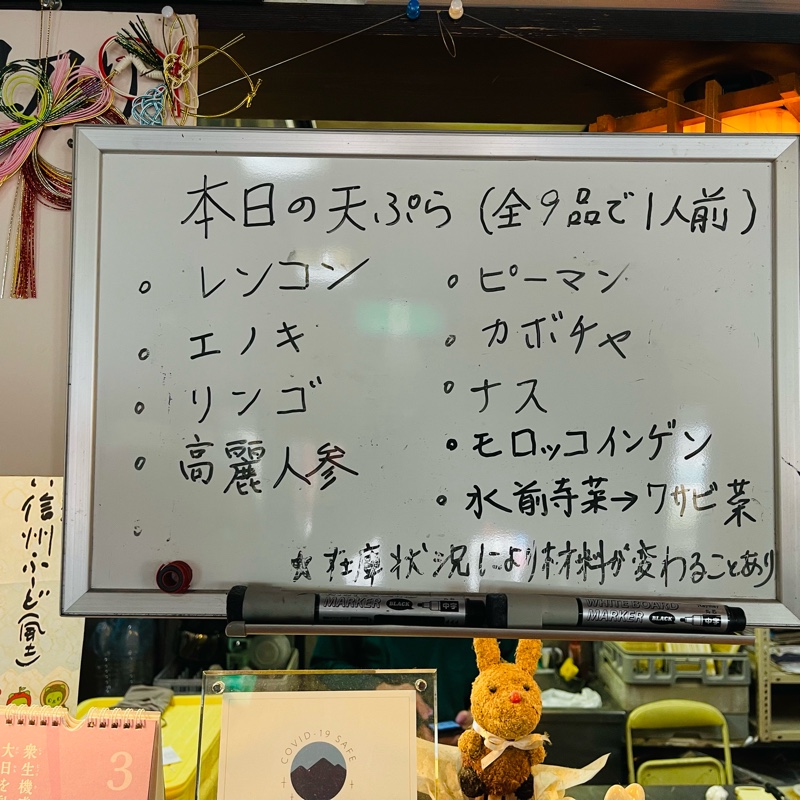 本日の天ぷら (全9品で1人前)
○ レンコン
○ エノキ
○ リンゴ
○ 高麗人参
○ ピーマン
○ カボチャ
○ ナス
• モロッコインゲン
○ 水前寺菜→ワサビ菜
☆在庫状況により材料が変わることあり
MARKER BLACK 中字
WHITE BOARD MARKER BLACK 中字
信州ふーど(風土)
3
衆生機
大日を
COVID-19 SAFE